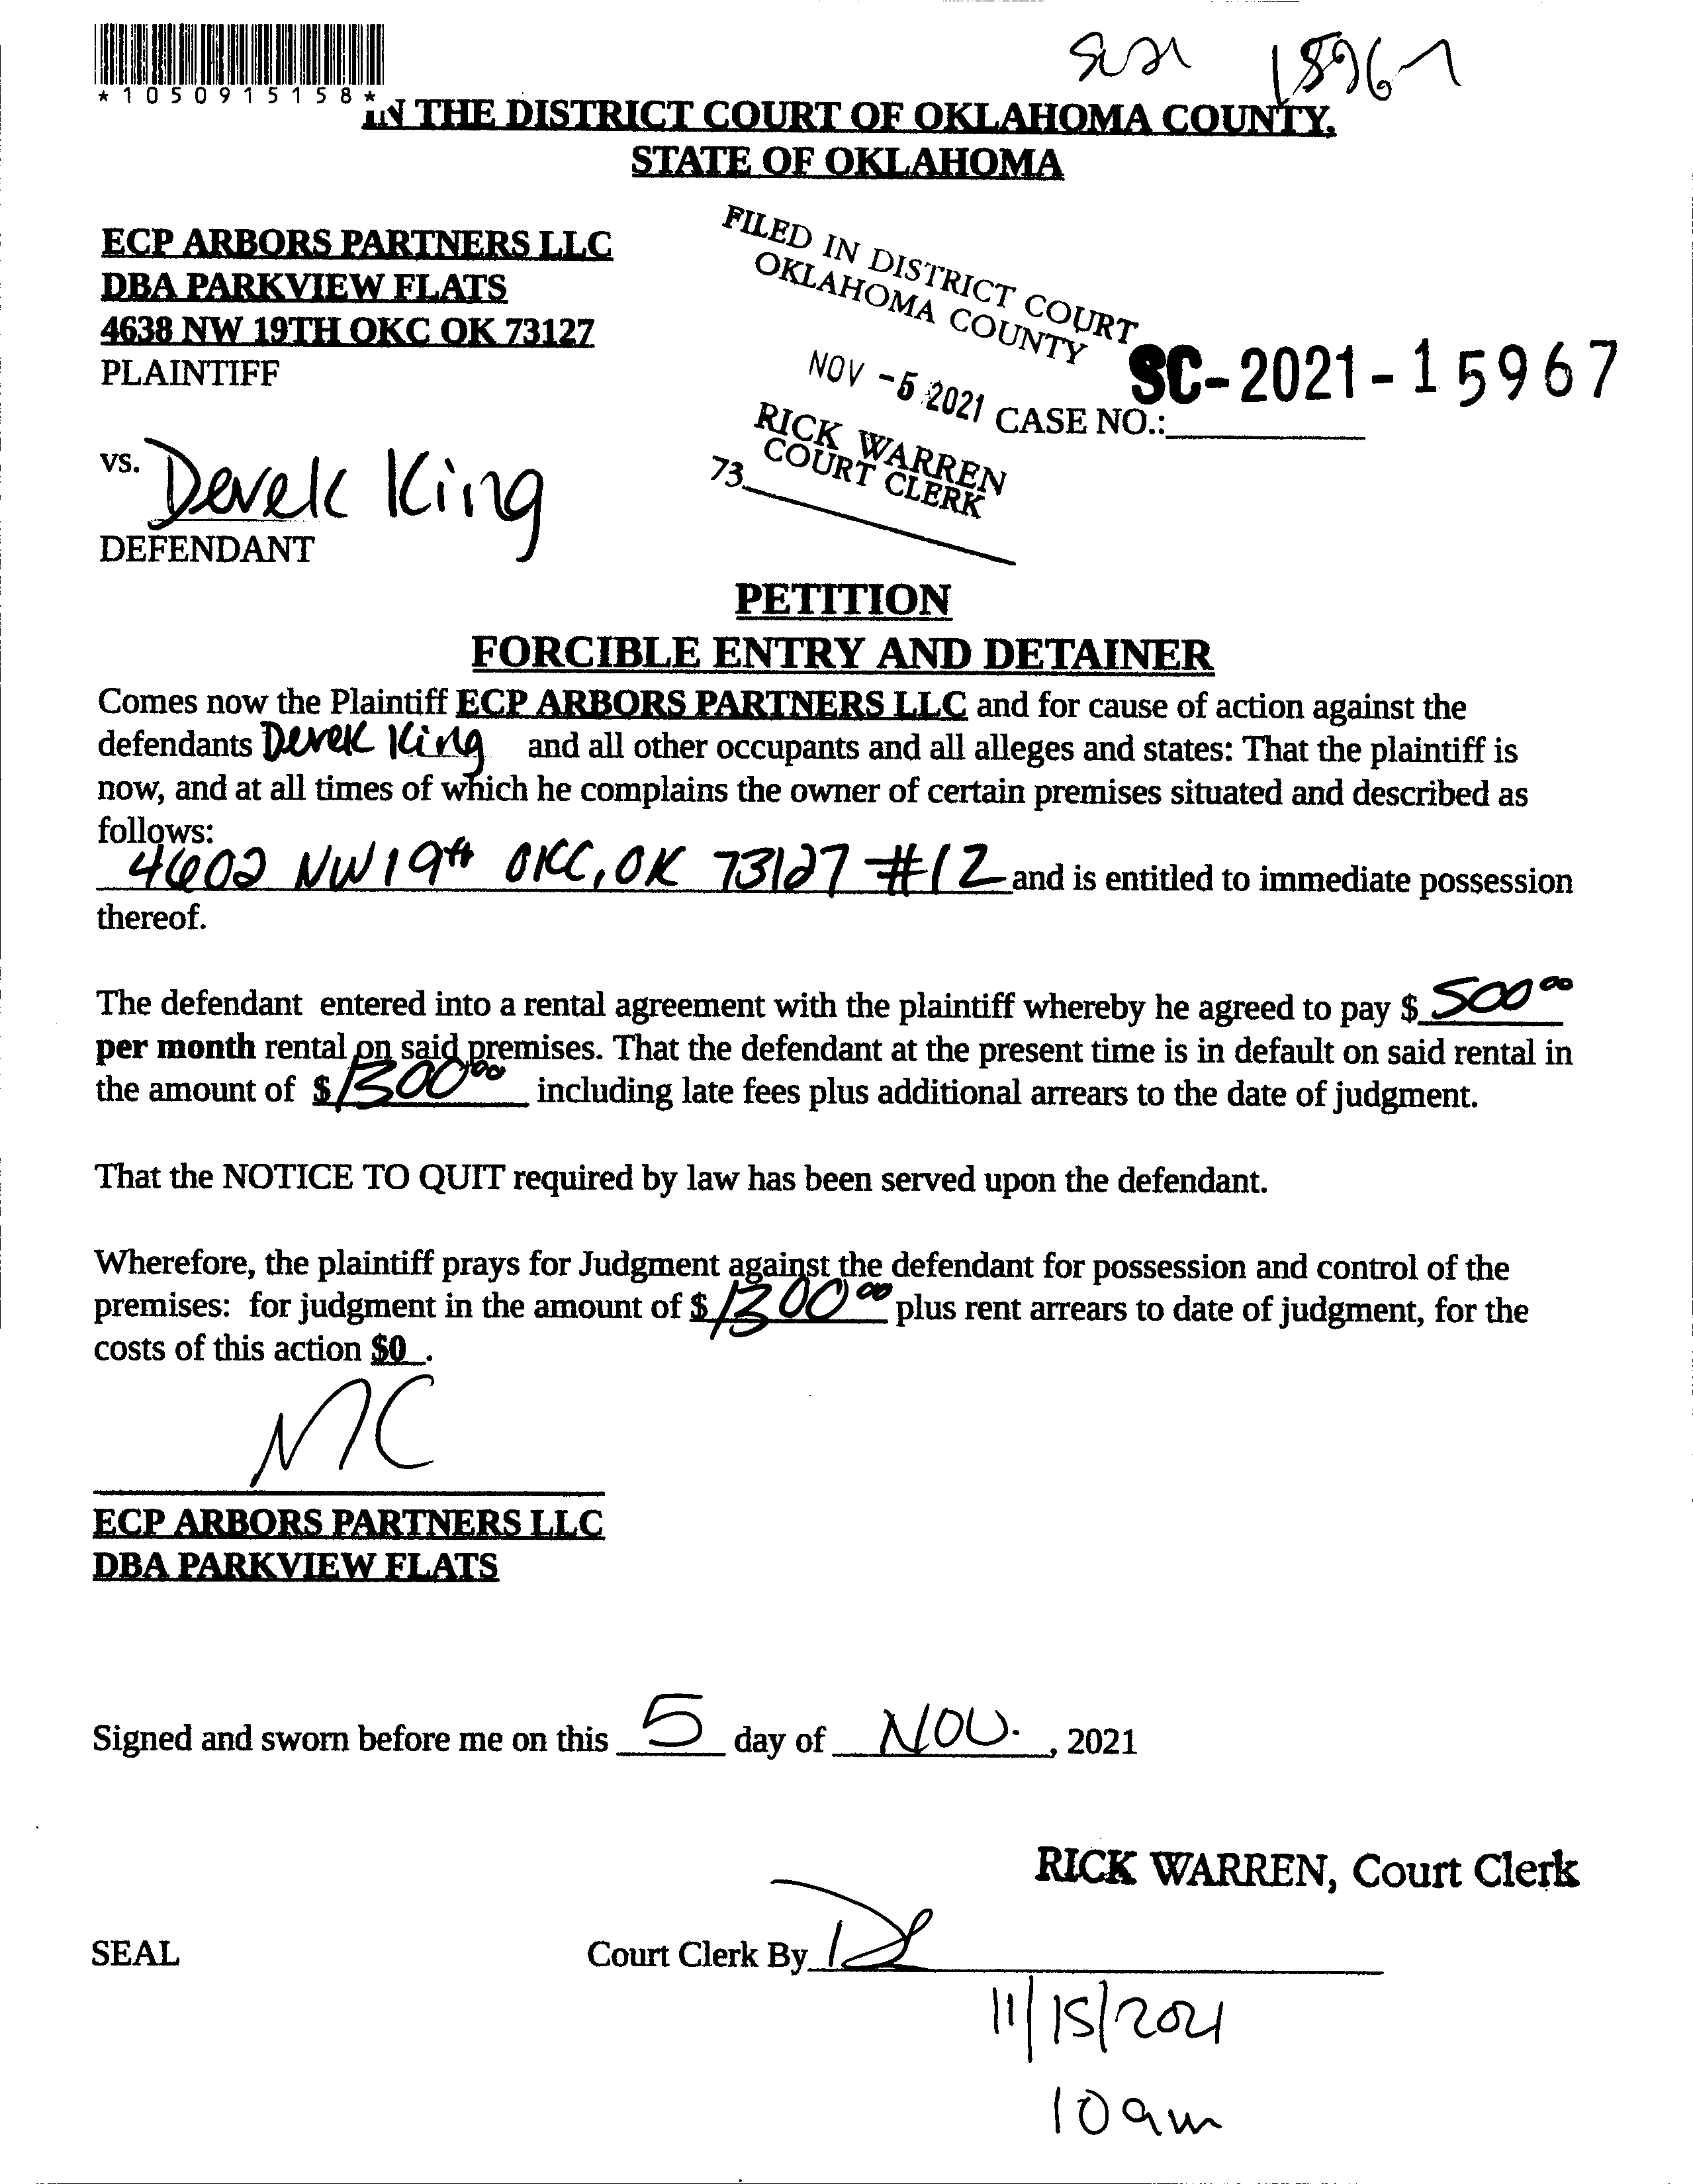 SC21 15967
*1050915158*
IN THE DISTRICT COURT OF OKLAHOMA COUNTY,
STATE OF OKLAHOMA
ECP ARBORS PARTNERS LLC
DBA PARKVIEW FLATS
4638 NW 19TH OKC OK 73127
PLAINTIFF
FILED IN DISTRICT COURT
OKLAHOMA COUNTY
NOV -5 2021
RICK WARREN
COURT CLERK
73
SC-2021-15967
CASE NO.:
vs. Derek King
DEFENDANT
PETITION
FORCIBLE ENTRY AND DETAINER
Comes now the Plaintiff ECP ARBORS PARTNERS LLC and for cause of action against the
defendants Derek King and all other occupants and all alleges and states: That the plaintiff is
now, and at all times of which he complains the owner of certain premises situated and described as
follows:
4602 NW 19th OKC, OK 73127 #12 and is entitled to immediate possession
thereof.
The defendant entered into a rental agreement with the plaintiff whereby he agreed to pay $ 500.00
per month rental on said premises. That the defendant at the present time is in default on said rental in
the amount of $ 1300.00 including late fees plus additional arrears to the date of judgment.
That the NOTICE TO QUIT required by law has been served upon the defendant.
Wherefore, the plaintiff prays for Judgment against the defendant for possession and control of the
premises: for judgment in the amount of $ 1300.00 plus rent arrears to date of judgment, for the
costs of this action $0 .
MC
ECP ARBORS PARTNERS LLC
DBA PARKVIEW FLATS
Signed and sworn before me on this 5 day of NOV. , 2021
RICK WARREN, Court Clerk
SEAL
Court Clerk By
11/15/2021
10am